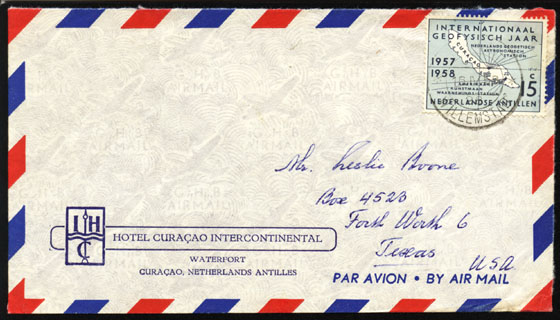 INTERNATIONAAL
GEOFYSISCH JAAR
NEDERLANDS GEODETISCH
ASTRONOMISCH
STATION
CURAÇAO
1957
1958
AMERIKAANS
KUNSTMAAN
WAARNEMINGSSTATION
C
15
NEDERLANDSE ANTILLEN
WILLEMSTAD
Mr. Leslie Boone
Box 4523
Forth Worth 6
Texas
USA
IHC
HOTEL CURAÇAO INTERCONTINENTAL
WATERFORT
CURAÇAO, NETHERLANDS ANTILLES
PAR AVION • BY AIR MAIL